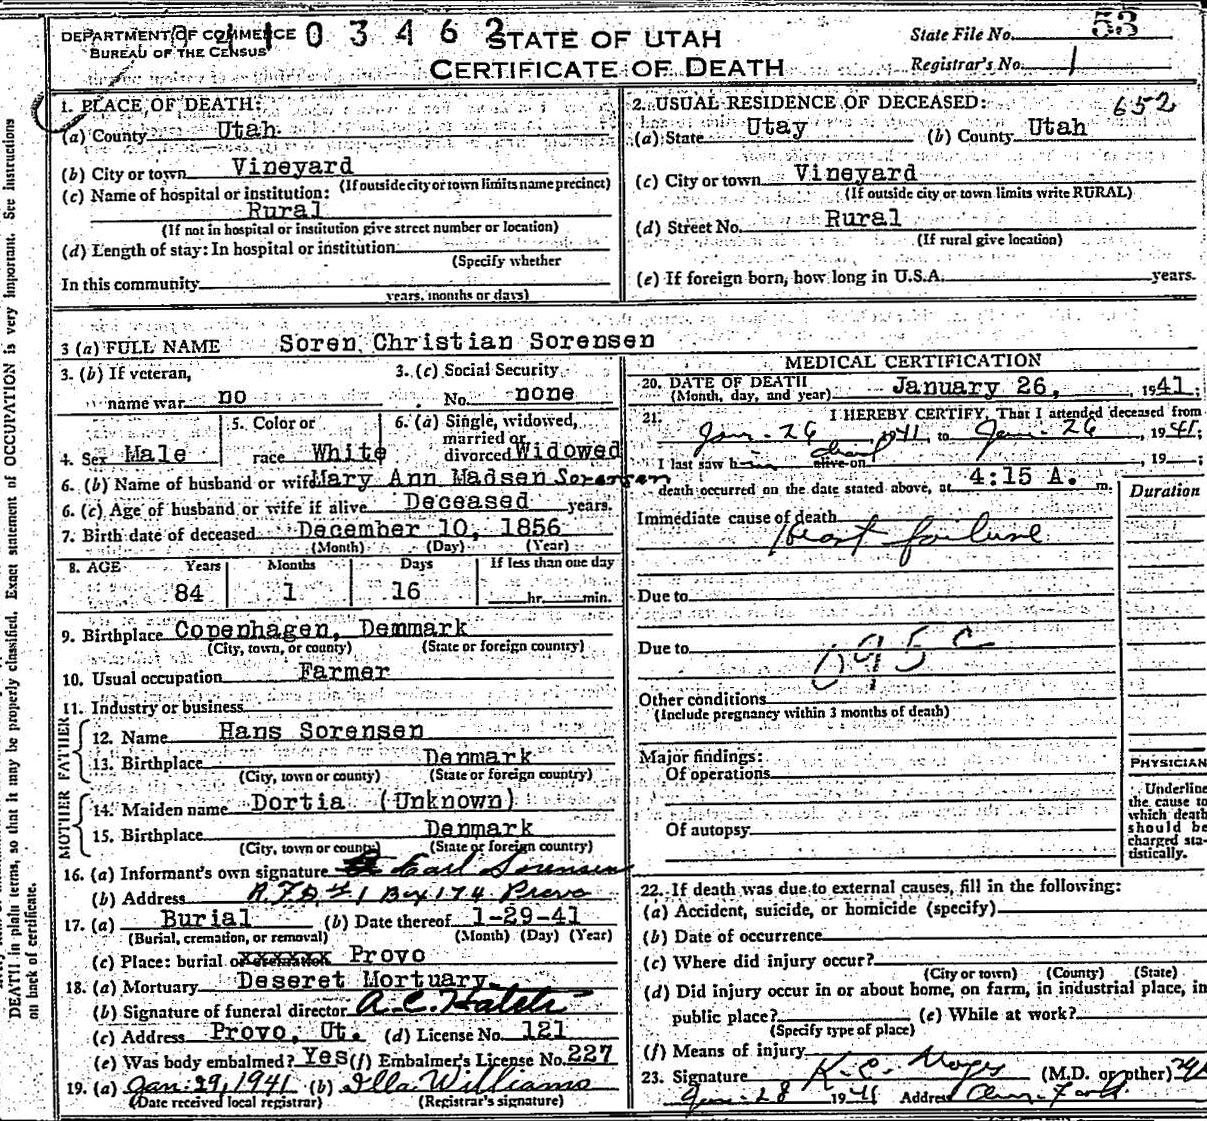 DEPARTMENT OF COMMERCE
BUREAU OF THE CENSUS
03462
STATE OF UTAH
CERTIFICATE OF DEATH
State File No. 53
Registrar's No. 1
1. PLACE OF DEATH:
(a) County Utah
(b) City or town Vineyard
(If outside city or town limits name precinct)
(c) Name of hospital or institution:
Rural
(If not in hospital or institution give street number or location)
(d) Length of stay: In hospital or institution
(Specify whether
In this community
years, months or days)
2. USUAL RESIDENCE OF DECEASED: 652
(a) State Utay (b) County Utah
(c) City or town Vineyard
(If outside city or town limits write RURAL)
(d) Street No. Rural
(If rural give location)
(e) If foreign born, how long in U.S.A. years.
3 (a) FULL NAME Soren Christian Sorensen
3. (b) If veteran,
name war no
3. (c) Social Security
No. none
4. Sex Male
5. Color or
race White
6. (a) Single, widowed,
married or
divorced Widowed
6. (b) Name of husband or wife Mary Ann Madsen Sorensen
6. (c) Age of husband or wife if alive Deceased years.
7. Birth date of deceased December 10, 1856
(Month) (Day) (Year)
8. AGE Years Months Days If less than one day
84 1 16 hr. min.
9. Birthplace Copenhagen, Demmark
(City, town, or county) (State or foreign country)
10. Usual occupation Farmer
11. Industry or business
FATHER
12. Name Hans Sorensen
13. Birthplace Denmark
(City, town or county) (State or foreign country)
MOTHER
14. Maiden name Dortia (Unknown)
15. Birthplace Denmark
(City, town or county) (State or foreign country)
16. (a) Informant's own signature Earl Sorensen
(b) Address R.F.D. #1 Box 174 Provo
17. (a) Burial (b) Date thereof 1-29-41
(Burial, cremation, or removal) (Month) (Day) (Year)
(c) Place: burial or cremation Provo
18. (a) Mortuary Deseret Mortuary
(b) Signature of funeral director A. C. Hatch
(c) Address Provo, Ut. (d) License No. 121
(e) Was body embalmed? Yes (f) Embalmer's License No. 227
19. (a) Jan. 29, 1941 (b) Illa Williams
(Date received local registrar) (Registrar's signature)
MEDICAL CERTIFICATION
20. DATE OF DEATH January 26, 1941;
(Month, day, and year)
21. I HEREBY CERTIFY, That I attended deceased from
Jan-26 1941, to Jan-26, 1941;
I last saw him alive on dead, 19 ;
death occurred on the date stated above, at 4:15 A. m.
Duration
Immediate cause of death
Heart failure
Due to
Due to
095 c
Other conditions
(Include pregnancy within 3 months of death)
Major findings:
Of operations
Of autopsy
PHYSICIAN
Underline
the cause to
which death
should be
charged sta-
tistically.
22. If death was due to external causes, fill in the following:
(a) Accident, suicide, or homicide (specify)
(b) Date of occurrence
(c) Where did injury occur?
(City or town) (County) (State)
(d) Did injury occur in or about home, on farm, in industrial place, in
public place? (e) While at work?
(Specify type of place)
(f) Means of injury
23. Signature K. E. (M.D. or other)
Jan-28 1941 Address
DEATH in plain terms, so that it may be properly classified. Exact statement of OCCUPATION is very important. See instructions
on back of certificate.